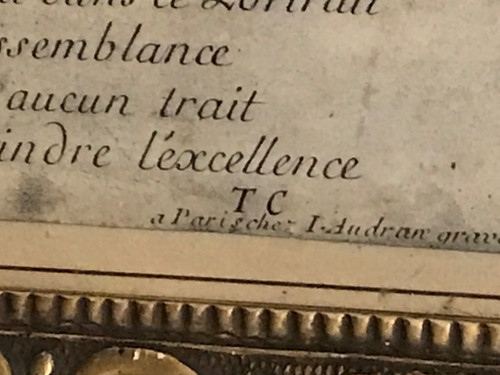 dans ce Portrait
ssemblance
aucun trait
indre l'éxcellence
T C
a Paris chez I. Audran grav